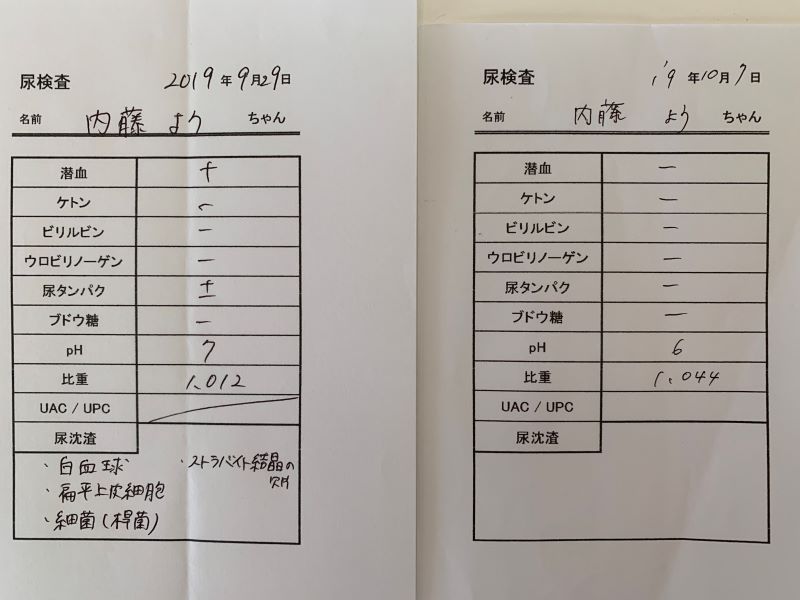 尿検査 2019年9月29日
名前 内藤 より ちゃん
潜血 +
ケトン -
ビリルビン -
ウロビリノーゲン -
尿タンパク ±
ブドウ糖 -
pH 7
比重 1.012
UAC / UPC
尿沈渣
・白血球
・扁平上皮細胞
・細菌(桿菌)
・ストラバイト結晶の
欠片
尿検査 '19年10月7日
名前 内藤 より ちゃん
潜血 -
ケトン -
ビリルビン -
ウロビリノーゲン -
尿タンパク -
ブドウ糖 -
pH 6
比重 1.044
UAC / UPC
尿沈渣